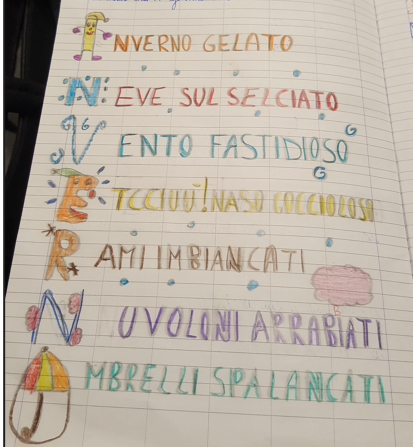 INVERNO GELATO
NEVE SUL SELCIATO
VENTO FASTIDIOSO
ETCCIUU'! NASO GOCCIOLOSO
RAMI IMBIANCATI
NUVOLONI ARRABIATI
OMBRELLI SPALANCATI